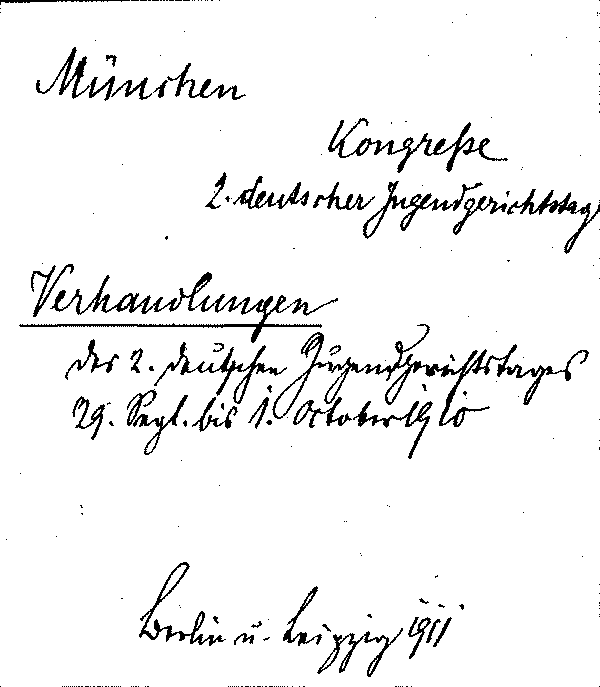 München
Kongreße
2. deutscher Jugendgerichtstag
Verhandlungen
des 2. deutschen Jugendgerichtstages
29. Sept. bis 1. October 1910
Berlin u. Leipzig 1911